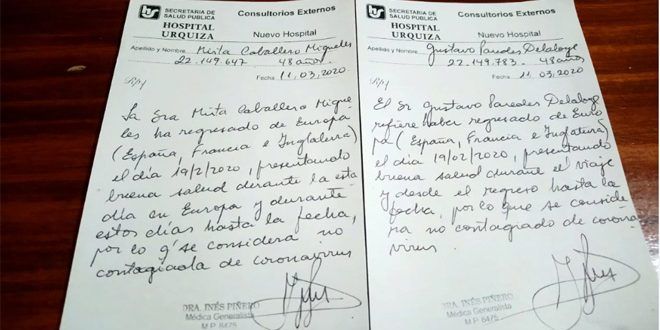 SECRETARIA DE
SALUD PUBLICA
HOSPITAL
URQUIZA
Consultorios Externos
Nuevo Hospital
Apellido y Nombre Mirta Caballero Migueles
22.149.647 48 años.
Fecha 11.03.2020
Rp/
La Sra Mirta Caballero Migue
les ha regresado de Europa
(España, Francia e Inglaterra)
el día 19/2/2020, presentando
buena salud durante la esta
día en Europa y durante
estos días hasta la fecha,
por lo q' se considera no
contagiada de coronavirus
DRA. INÉS PIÑERO
Médica Generalista
M.P. 6475
SECRETARIA DE
SALUD PUBLICA
HOSPITAL
URQUIZA
Consultorios Externos
Nuevo Hospital
Apellido y Nombre Gustavo Paredes Delaloye
22.149.783. 48 años
Fecha 11.03.2020
Rp/
El Sr Gustavo Paredes Delaloye
refiere haber regresado de Euro
pa (España, Francia e Inglaterra)
el día 19/02/2020, presentando
buena salud durante el viaje
y desde el regreso hasta la
fecha, por lo que se conside
ra no contagiado de corona
virus.
DRA. INÉS PIÑERO
Médica Generalista
M.P. 6475